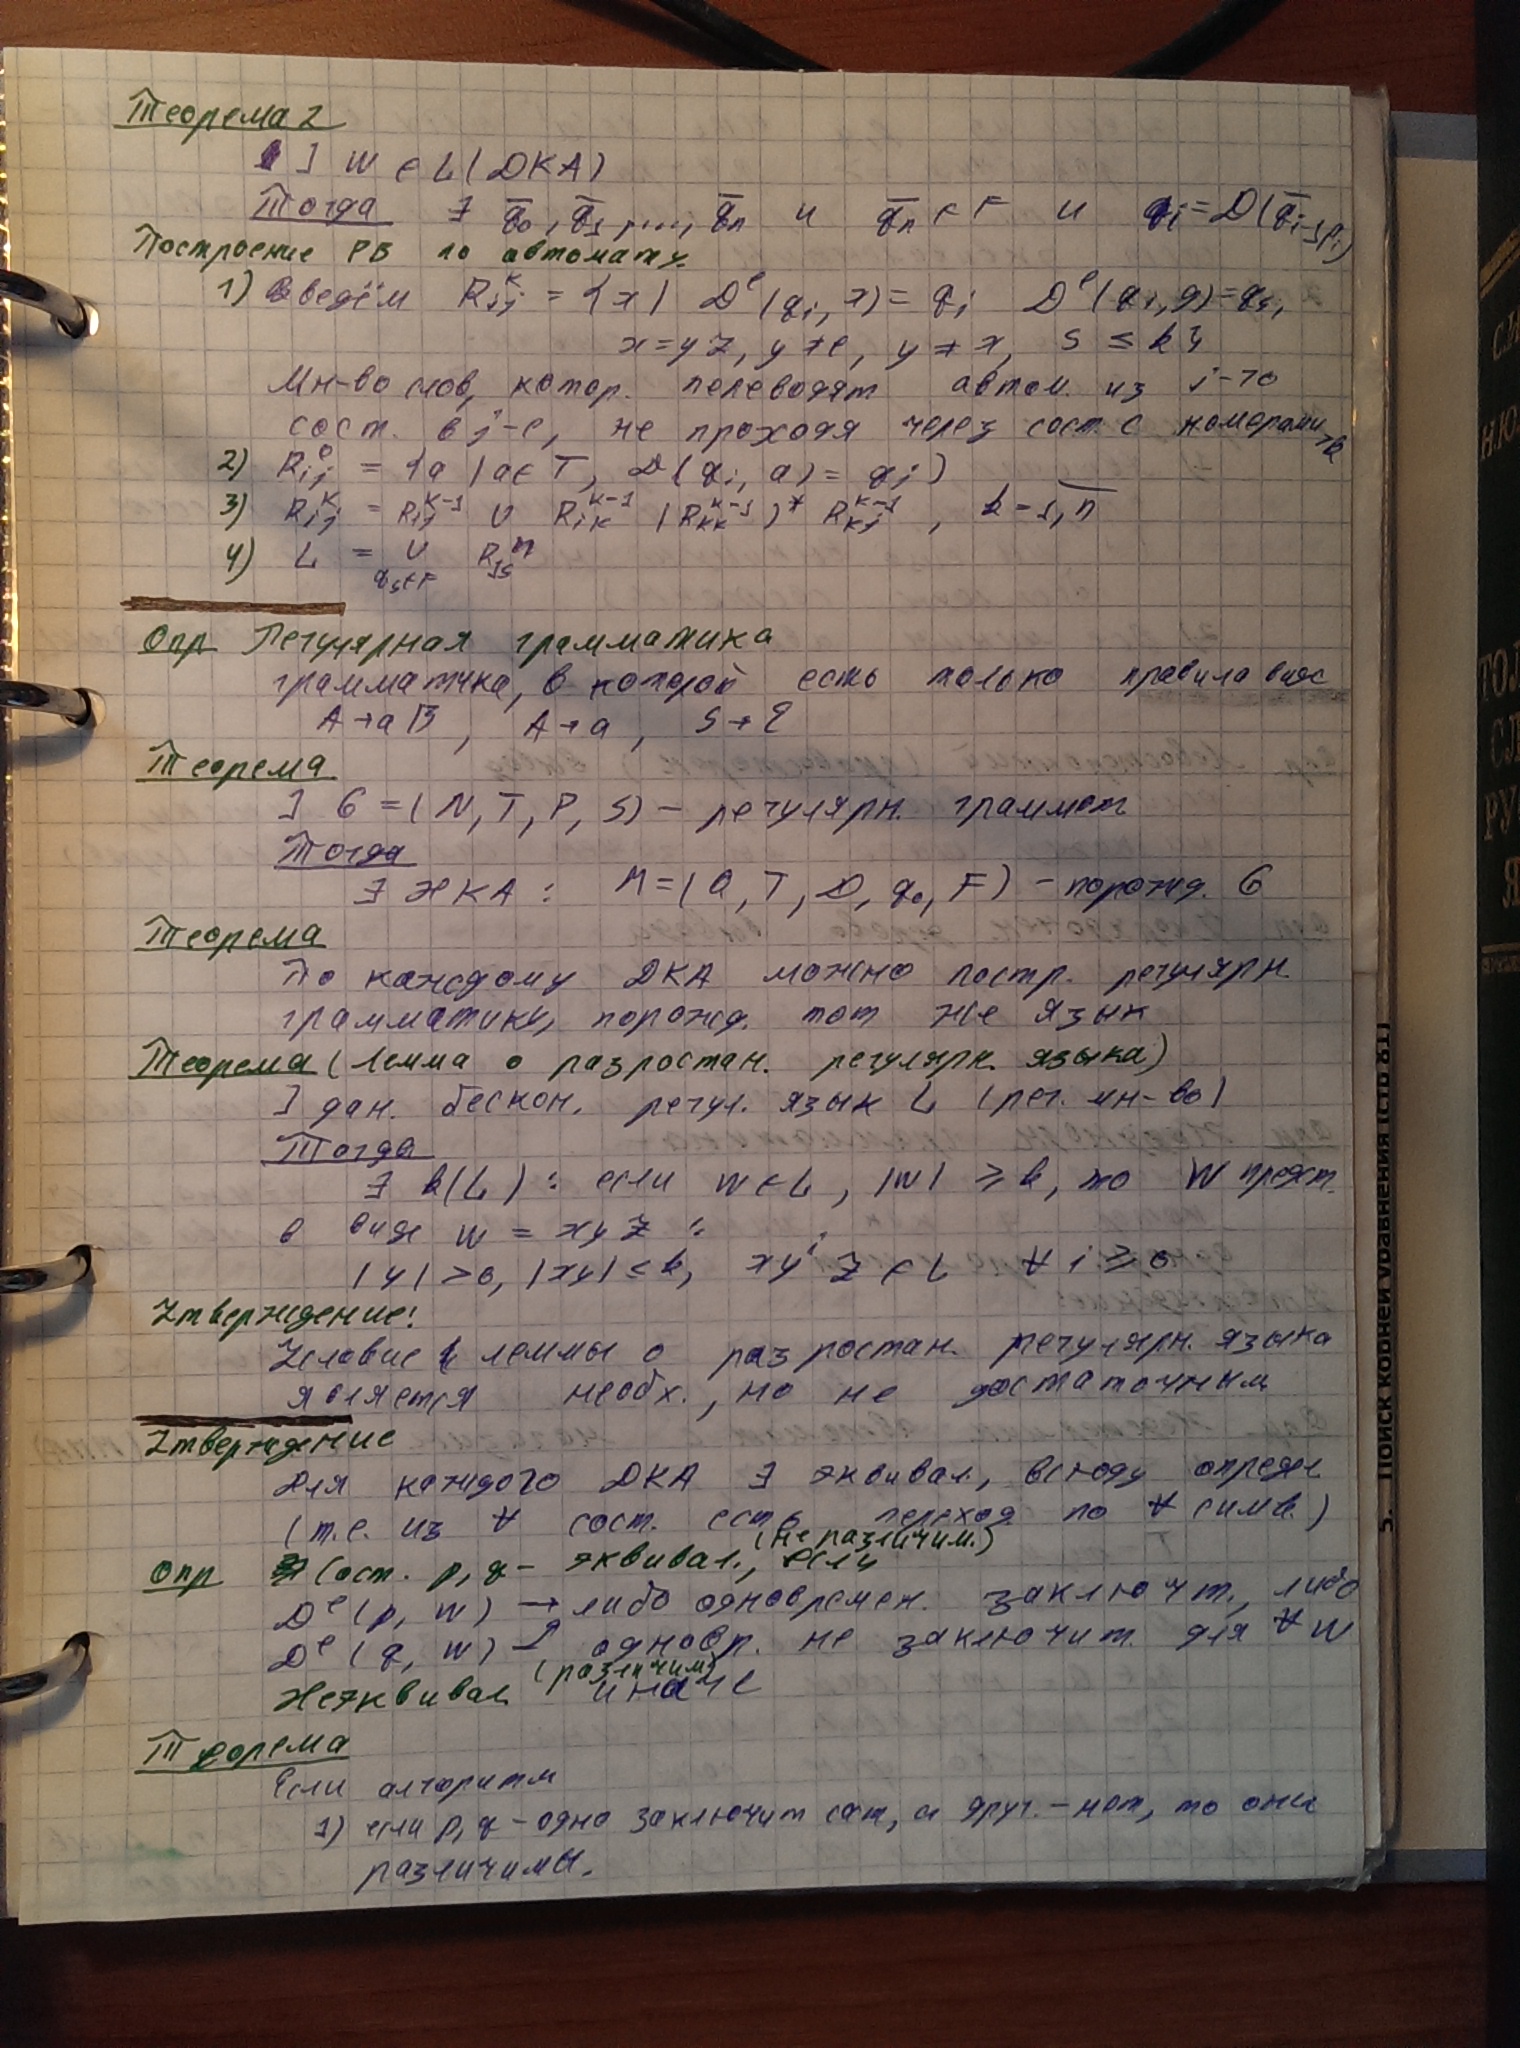 Теорема 2
] w ∈ L(ДКА)
Тогда ∃ q̅₀, q̅₁, ..., q̅ₙ и q̅ₙ ∈ F и q̅ᵢ = D(q̅ᵢ₋₁, pᵢ)
Построение РВ по автомату.
1) Введём Rᵢⱼᵏ = {x | Dᵉ(qᵢ, x) = qⱼ Dᵉ(qᵢ, y) = qₛ,
x = yz, y ≠ e, y ≠ x, s ≤ k}
Мн-во слов, котор. переводят автом. из i-го
сост. в j-е, не проходя через сост. с номерами >k
2) Rᵢⱼ⁰ = {a | a ∈ T, D(qᵢ, a) = qⱼ}
3) Rᵢⱼᵏ = Rᵢⱼᵏ⁻¹ ∪ Rᵢₖᵏ⁻¹ (Rₖₖᵏ⁻¹)* Rₖⱼᵏ⁻¹, k = 1,n̅
4) L = ∪ R₁ₛⁿ
qₛ∈F
Опр Регулярная грамматика
грамматика, в которой есть только правила вида
A → aB, A → a, S → ε
Теорема
] G = (N, T, P, S) – регулярн. граммат
Тогда
∃ НКА : M = (Q, T, D, q₀, F) – порожд. G
Теорема
По каждому ДКА можно постр. регулярн.
грамматику, порожд. тот же язык
Теорема (Лемма о разростан. регулярн. языка)
] дан. бескон. регул. язык L (рег. мн-во)
Тогда
∃ k(L) : если w ∈ L, |w| ≥ k, то w предст.
в виде w = xyz :
|y| > 0, |xy| ≤ k, xyⁱz ∈ L ∀ i ≥ 0
Утверждение:
Условие леммы о разростан. регулярн. языка
является необх., но не достаточным
Утверждение
Для каждого ДКА ∃ эквивал., всюду определ
(т.е. из ∀ сост. есть переход по ∀ симв.)
(неразличим.)
Опр Сост. p, q – эквивал., если
Dᵉ(p, w) → либо одновремен. заключит., либо
Dᵉ(q, w) ↗ одновр. не заключит. для ∀ w
(различим)
Неэквивал. иначе
Теорема
Если алгоритм
1) если p, q – одно заключит сост, а друг. – нет, то они
различимы.
С.И
Н.Ю.
ТОЛ
СЛ
РУС
Я
5. Поиск корней уравнения (стр 81)